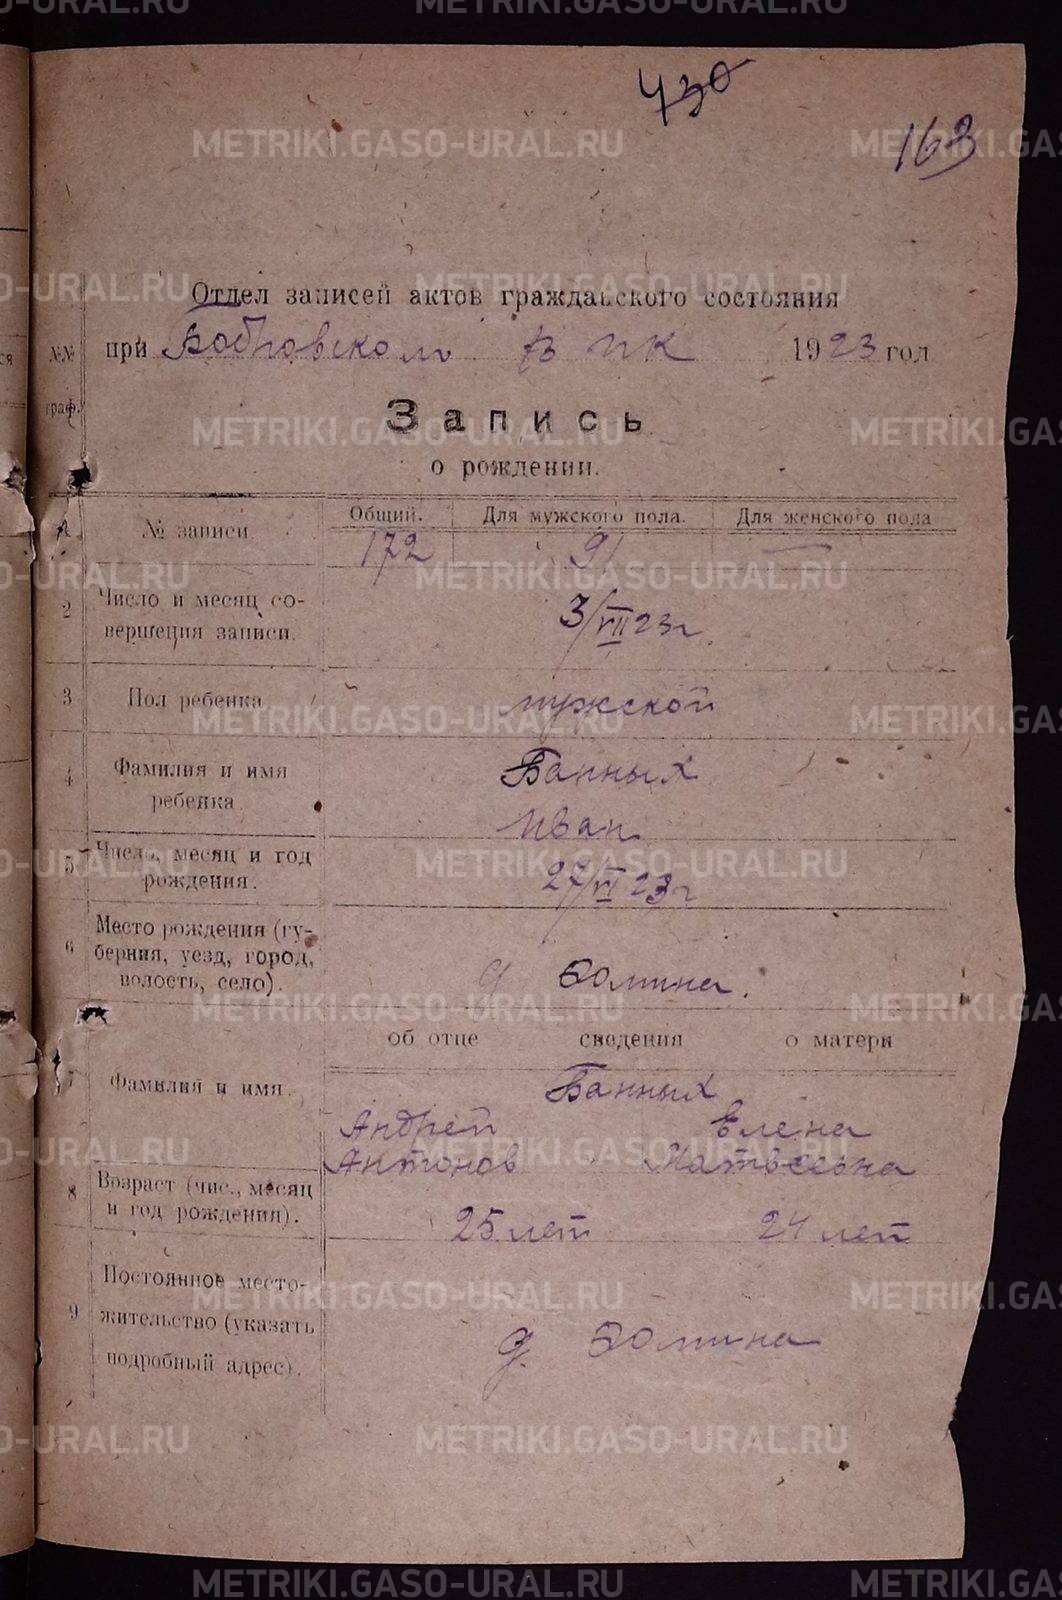 430
163
Отдел записей актов гражданского состояния
№№ граф.
при Бобровском ВИК 1923 год
Запись
о рождении.
1 № записи Общий. Для мужского пола. Для женского пола
172 91 —
2 Число и месяц совершения записи. 3/VII 23 г
3 Пол ребенка мужской
4 Фамилия и имя ребенка. Банных
Иван
5 Число, месяц и год рождения. 27/VI 23 г
6 Место рождения (губерния, уезд, город, волость, село). д Фомина.
об отце сведения о матери
7 Фамилия и имя. Банных
Андрей Елена
Антонов Матвеевна
8 Возраст (чис., месяц и год рождения). 25 лет 24 лет
9 Постоянное местожительство (указать подробный адрес). д. Фомина
METRIKI.GASO-URAL.RU